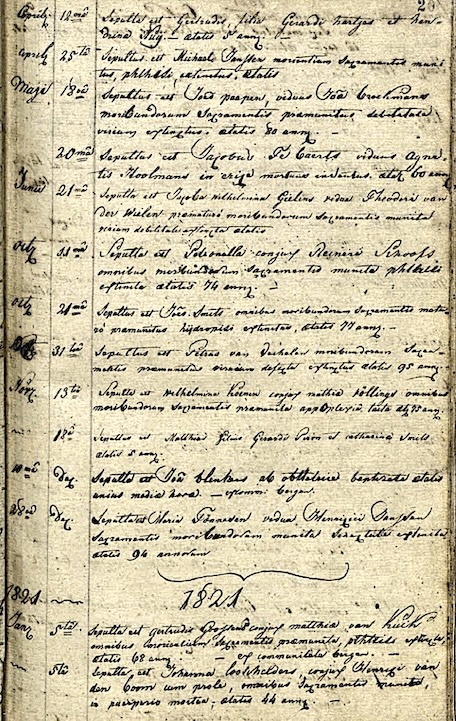 2
Aprilis 12ma Sepulta est Gertrudis, filia Girardi hartjes et hen-
drina ætatis 5 ann. —
April 25ta Sepultus est Michael Janssen morientium Sacramentis muni
tus, phthisi extinctus, ætatis
Maji 18va Sepultus est Joês paapen, viduus Joæ Broekmans
moribundorum Sacramentis præmunitus debilitate
virium extinctus, ætatis 80 ann. —
20ma Sepultus est Jacobus viduus Agne-
tis Moolmans in mortuus inventus. ætat. 60 ann.
Junii 21ma Sepulta est Jacoba wilhelmina Gielens vidua Theodori van
der Wielen præmature moribundorum Sacramentis munita
virium debilitate extincta ætatis
8tis 11ma Sepulta est Petronella conjux Reineri Schoofs
omnibus moribundorum Sacramentis munita phthisi
extincta ætatis 74 ann. —
8tis 21ma Sepultus est Joês Smits omnibus moribundorum Sacramentis matu-
rè præmunitus hydropisi extinctus, ætatis 77 ann. —
31ta Sepultus est Petrus van moribundorum Sacra-
mentis præmunitus virium defectu extinctus ætatis 95 ann.
Nov. 13tia Sepulta est Wilhelmina Koenen conjux mathiæ omnibus
moribundorum Sacramentis præmunita appoplexia tacta æt. 75 ann.
18va Sepultus est Matthias filius Girardi et catharinæ Smits
ætatis 5 ann.
10ma Dec. Sepulta est Joâ blenkers ab obstetrice baptizata ætatis
unius mediæ horæ. — ex comm. bergen.
28va Dec. Sepulta est Maria Toonesen vidua Henrici Janssen
Sacramentis moribundorum munita senectute extincta
ætatis 94 annorum
1821 1821
Jan. 5ta Sepulta est gertrudis conjux matthiæ van Kuick
omnibus morientium Sacramentis præmunita, phthisi extincta,
ætatis 68 ann. — ex communitate bergen. —
5ta Sepulta est Johanna conjux Henrici van
den boom cum prole, omnibus Sacramentis munita,
in puerperio mortua. ætatis 44 ann. —